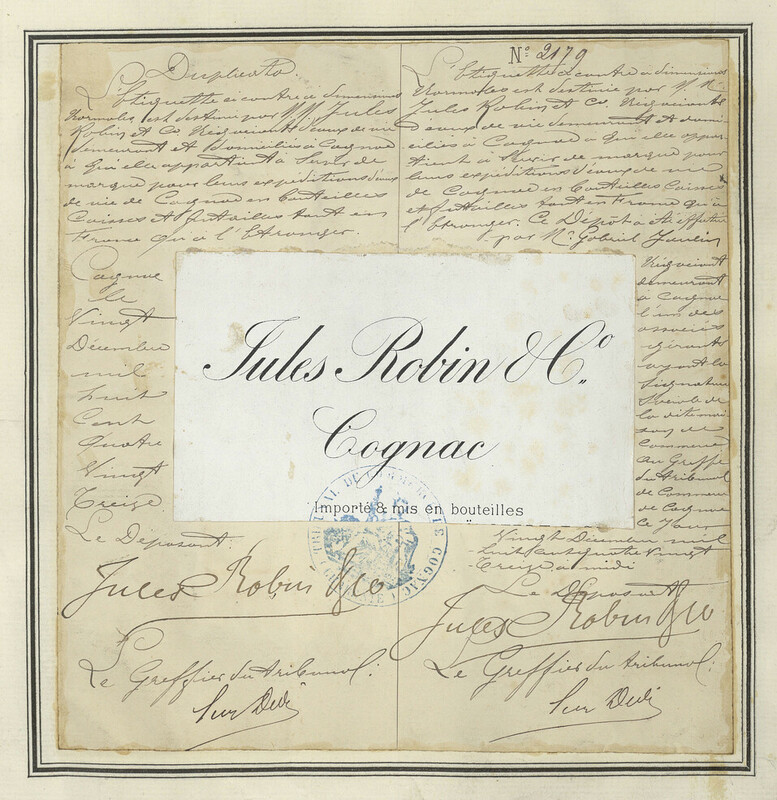 Duplicata.
L'étiquette ci contre à dimensions
Normales est destinée par MM Jules
Robin et Co Négociants d'eaux de vie
demeurant et domiciliés à Cognac
à qui elle appartient à Servir de
marque pour leurs expéditions d'eaux
de vie de Cognac en bouteilles
Caisses et futailles tant en
France qu'à l'Etranger.
Cognac
le
Vingt
Décembre
mil
huit
Cent
Quatre
Vingt
Treize
Le Déposant:
Jules Robin & Co
Le Greffier du tribunal:
No 2179
L'étiquette ci contre à dimensions
Normales est destinée par M. M.
Jules Robin et Co. Négociants
d'eaux de vie demeurant et domi-
ciliés à Cognac à qui elle appar-
tient à Servir de marque pour
leurs expéditions d'eaux de vie
de Cognac en bouteilles Caisses
et futailles tant en France qu'à
l'Etranger. Ce Dépôt a été effectué
par Mr. Gabriel
Négociant
demeurant
à Cognac
l'un des
associés
gérants
ayant la
Signature
Sociale de
la dite mai-
son de
Commerce
au Greffe
du tribunal
de Commerce
de Cognac
ce Jour
Vingt Décembre mil
huit cent quatre Vingt
Treize à midi
Le Déposant
Jules Robin & Co
Le Greffier du tribunal:
Jules Robin & Co.
Cognac
Importé & mis en bouteilles
TRIBUNAL DE COMMERCE DE COGNAC